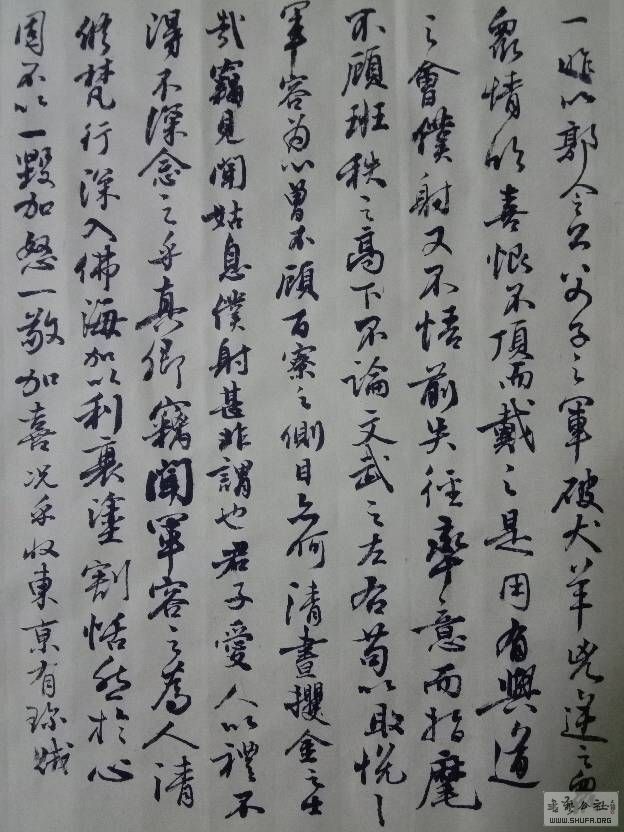 一昨以郭令公父子之軍破犬羊兇逆之眾
眾情欣喜恨不頂而戴之是用有興道
之會僕射又不悟前失徑率意而指麾
不顧班秩之高下不論文武之左右苟以取悅
軍容為心曾不顧百寮之側目亦何清晝攫金之士
哉竊見聞姑息僕射甚非謂也君子愛人以禮不
得不深念之乎真卿竊聞軍容之為人清
修梵行深入佛海加以利衰塗割恬然於心
固不以一毀加怒一敬加喜況乎收東京有殄賊
书艺公社
WWW.SHUFA.ORG